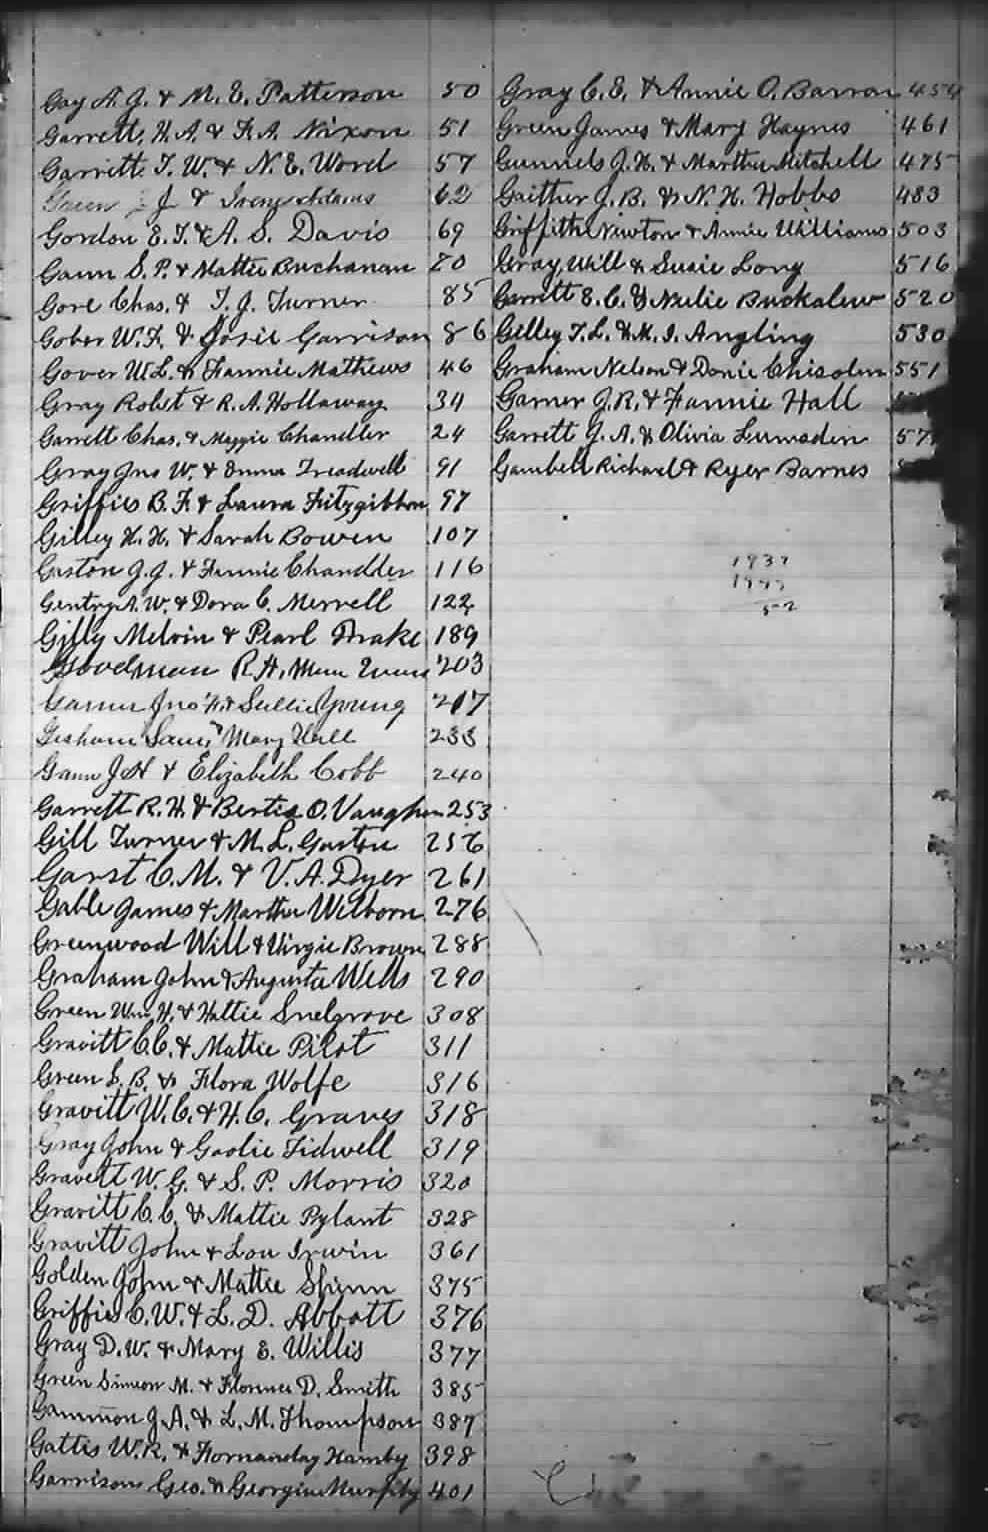 Gay A. J. & M. E. Patterson 50
Garrett, H. A. & F. A. Nixon 51
Garrett T. W. & N. E. Word 57
J & Irene Adams 62
Gordon E. T. & A. S. Davis 69
Gann S. P. & Mattie Buchanan 80
Gore Chas. & T. J. Turner 85
Gober W. F. & Josie Garrison 86
Gover W. L. & Fannie Mathews 46
Gray Robt & R. A. Hollaway 34
Garrett Chas. & Maggie Chandler 24
Gray Jno W. & Emma Treadwell 91
Griffies B. F. & Laura Fitzgibbon 97
Gilley H. H. & Sarah Bowen 107
Gaston J. J. & Fannie Chandler 116
Gentry A. W. & Dora C. Merrell 122
Gilly Melvin & Pearl Drake 189
Goodman R. H. 203
Jno & Sallie Young 217
Mary Hall 233
Gann J H & Elizabeth Cobb 240
Garrett R. H. & Bertie O. Vaughn 253
Gill Turner & M. L. Gaston 256
Garst C. M. & V. A. Dyer 261
Gable James & Martha Wilborn 276
Greenwood Will & Virgie Brown 288
Graham John & Augusta Wells 290
Green Wm, H. & Hattie Snelgrove 308
Gravitt C. C. & Mattie Pilot 311
Green S. B. & Flora Wolfe 316
Gravitt W. C. & H. C. Graves 318
Gray John & Goolie Tidwell 319
Gravett W. G. & S. P. Morris 320
Gravitt C. C. & Mattie Pylant 328
Gravitt John & Lou Irwin 361
Golden John & Mattie 375
Griffies C. W. & L. D. Abbott 376
Gray D. W. & Mary E. Willis 377
Green Simeon M. & Florence D. Smith 385
Gammon J. A. & L. M. Thompson 387
Gattis W. R. & Hamby 398
Garrison Geo. & Georgia Murphy 401
Gray C. E. & Annie O. Barron 454
Green James & Mary Haynes 461
Gunnels J. H. & Martha Mitchell 475
Gaither J. B. & N. H. Hobbs 483
Griffith Newton & Annie Williams 503
Gray, Will & Susie Long 516
Garrett E. C. & Nulie Buckalew 520
Gilley T. L. & M. I. Angling 530
Graham Nelson & Donie Chisolm 551
Garner J. R. & Fannie Hall
Garrett J. A. & Olivia Lumsden 57
Gambell Richard & Ryer Barnes
1937